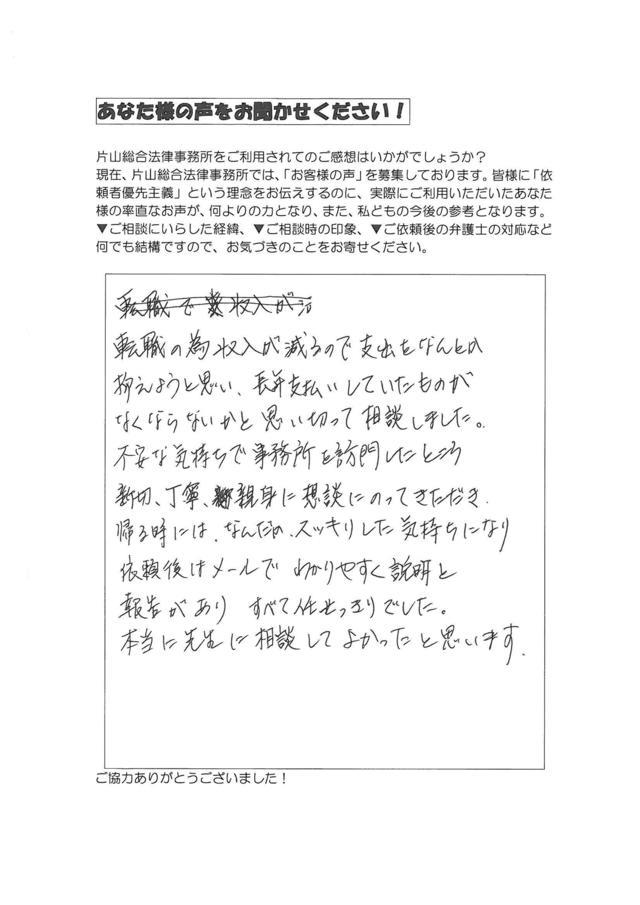 あなた様の声をお聞かせください！
片山総合法律事務所をご利用されてのご感想はいかがでしょうか？
現在、片山総合法律事務所では、「お客様の声」を募集しております。皆様に「依
頼者優先主義」という理念をお伝えするのに、実際にご利用いただいたあなた
様の率直なお声が、何よりの力となり、また、私どもの今後の参考となります。
▼ご相談にいらした経緯、▼ご相談時の印象、▼ご依頼後の弁護士の対応など
何でも結構ですので、お気づきのことをお寄せください。
転職で 収入が
転職の為収入が減るので支出をなんとか
抑えようと思い、長年支払いしていたものが
なくならないかと思い切って相談しました。
不安な気持ちで事務所を訪問したところ
親切、丁寧、親身に想談にのっていただき
帰る時には、なんだか、スッキリした気持ちになり
依頼後はメールでわかりやすく説明と
報告があり すべて任せっきりでした。
本当に先生に相談してよかったと思います。
ご協力ありがとうございました！